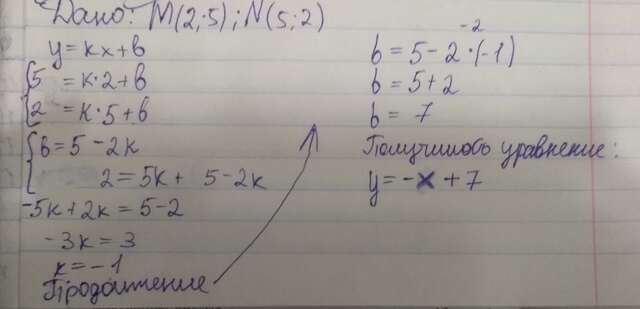 Дано: M(2;5); N(5;2)
y=kx+b
5 = k·2+b
2 = k·5+b
b=5-2k
2=5k+ 5-2k
-5k+2k=5-2
-3k=3
k=-1
Продолжение
-2
b=5-2·(-1)
b=5+2
b= 7
Получилось уравнение:
y=-x+7